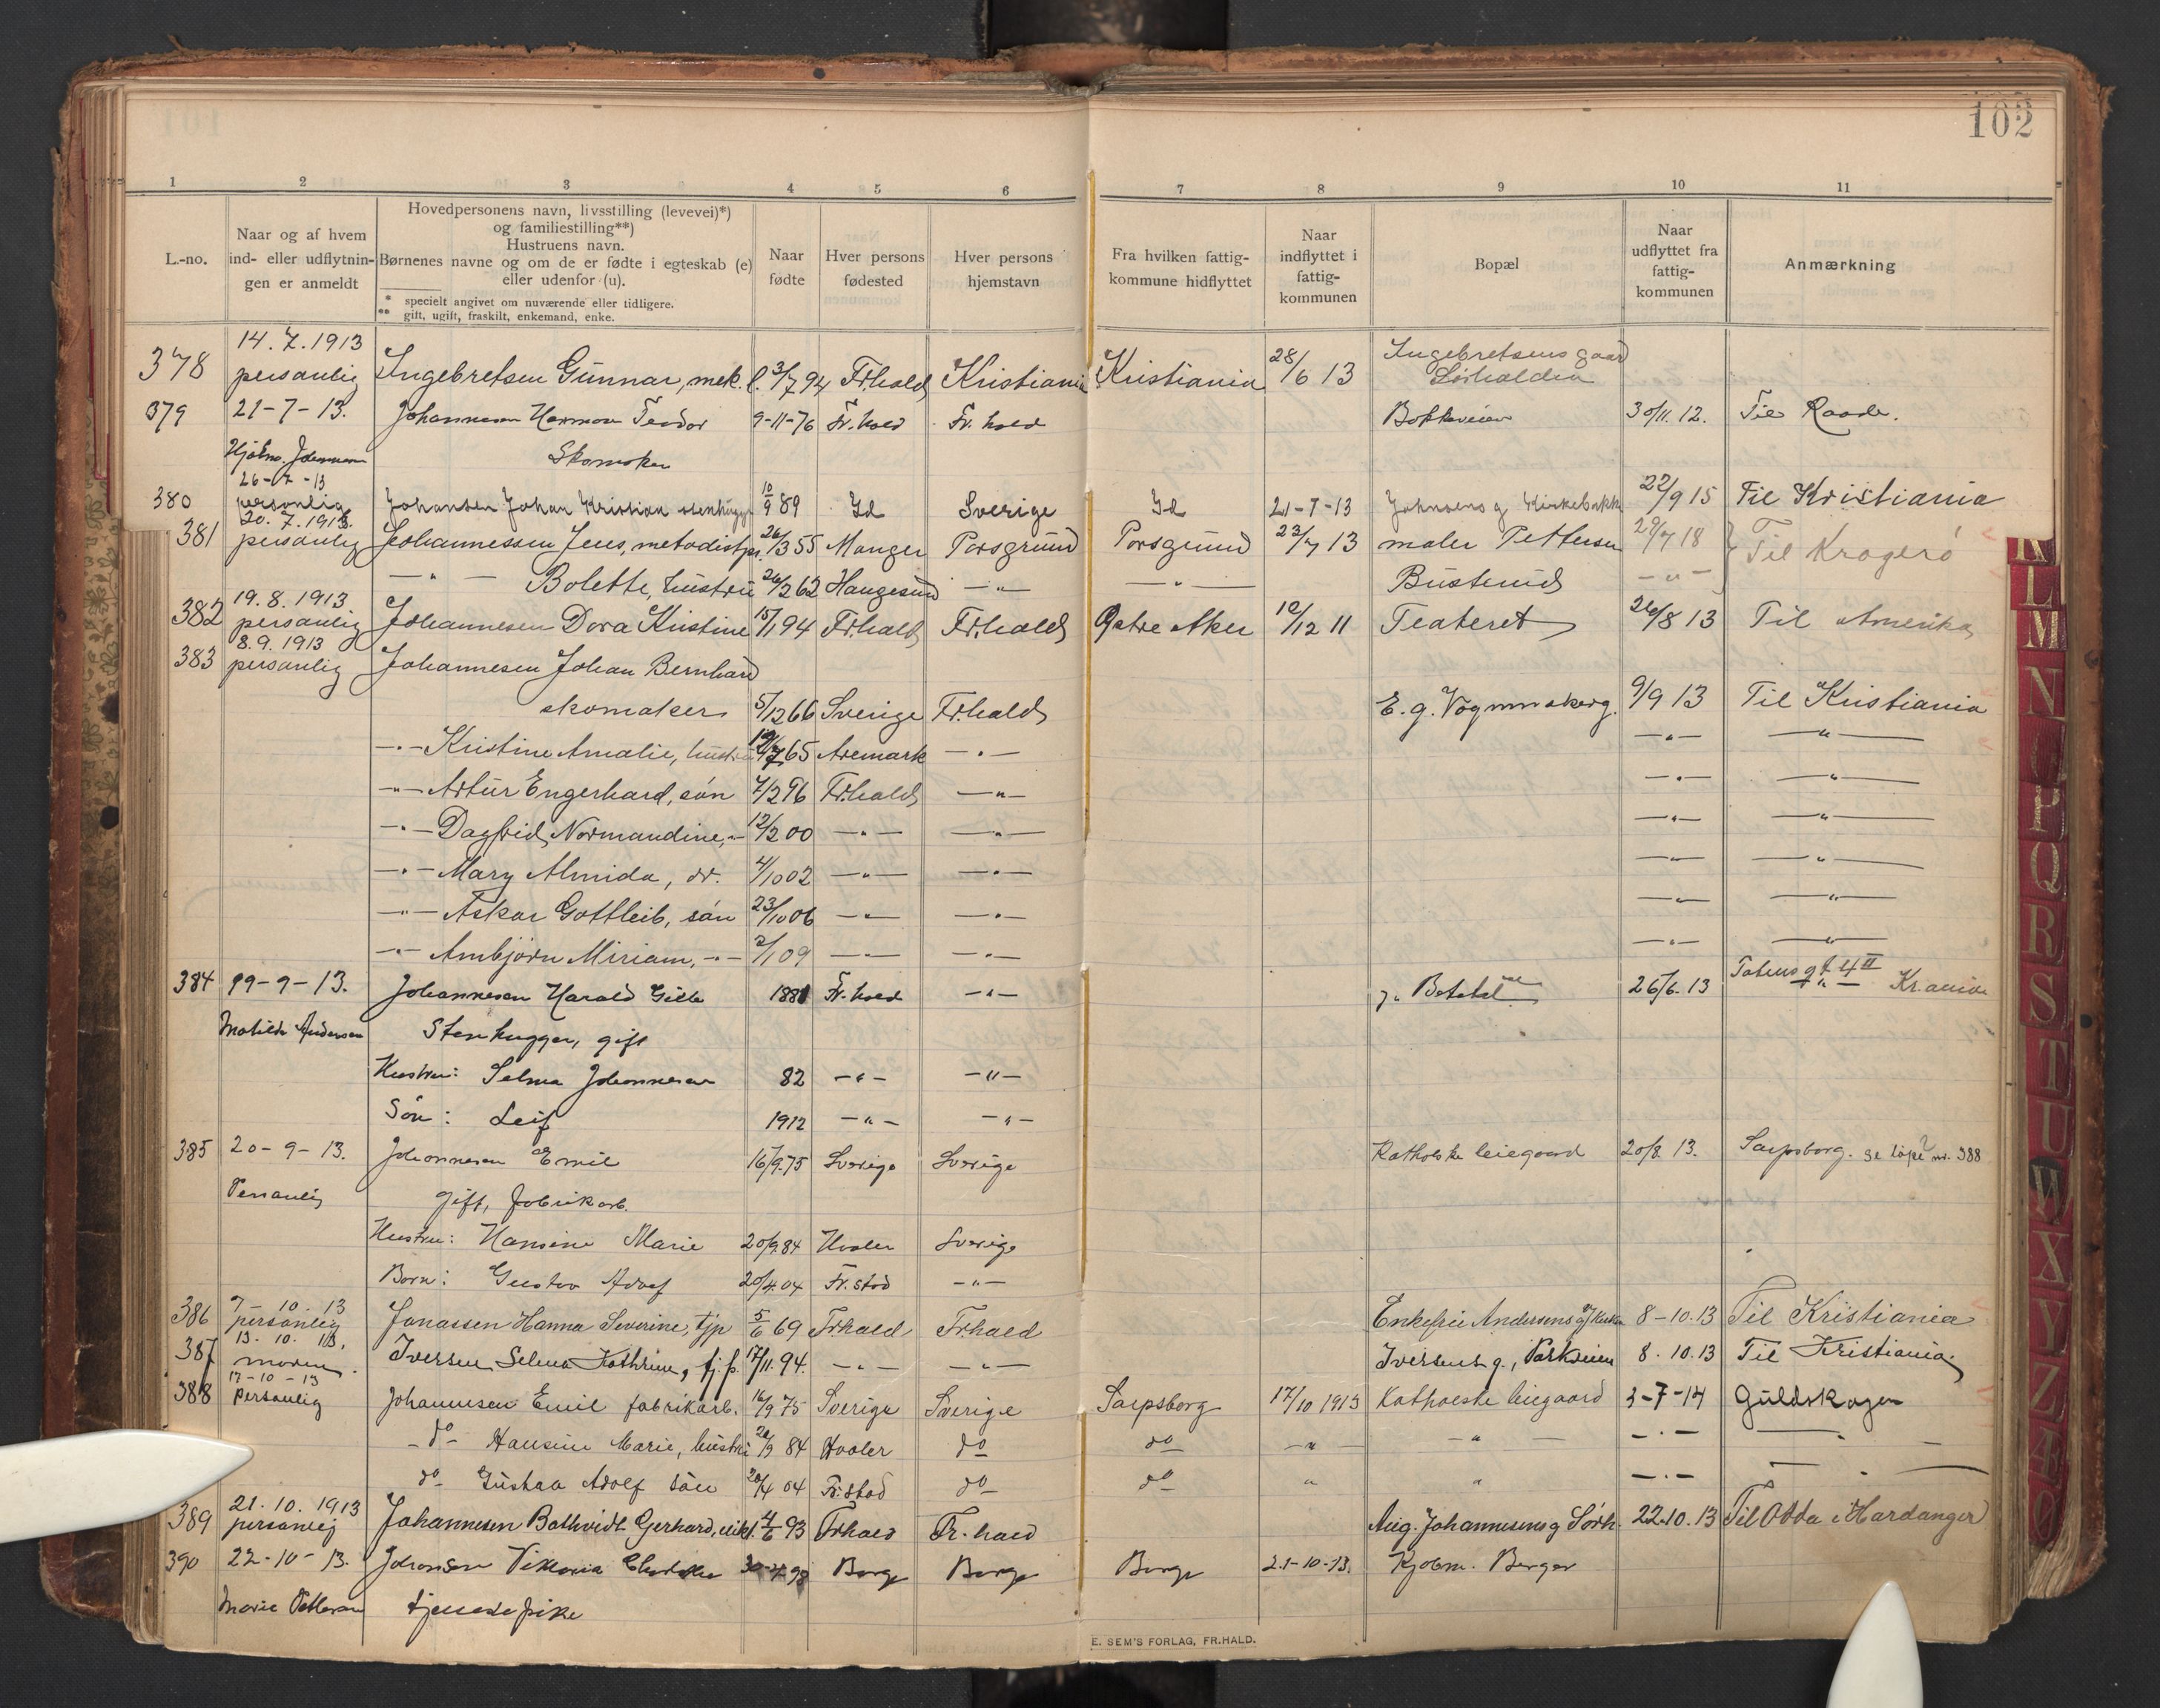 102
1 2 3 4 5 6 7 8 9 10 11
L.-no.
Naar og af hvem ind- eller udflytnin- gen er anmeldt
Hovedpersonens navn, livsstilling (levevei)*)
og familiestilling**)
Hustruens navn.
Børnenes navne og om de er fødte i egteskab (e)
eller udenfor (u).
* specielt angivet om nuværende eller tidligere.
** gift, ugift, fraskilt, enkemand, enke.
Naar fødte
Hver persons fødested
Hver persons hjemstavn
Fra hvilken fattig- kommune hidflyttet
Naar indflyttet i fattig- kommunen
Bopæl
Naar udflyttet fra fattig- kommunen
Anmærkning
14.7.1913 Ingebretsens gaard
378 personlig Ingebretsen Gunnar, mek. l. 3/7 94 Frhald Kristiania Kristiania 28/6 13 Sørhalden
379 21-7-13. Johannesen Herman Teodor 9-11-76 Fr.hald Fr.hald Bakkeveien 30/11.12. Til Raade.
Hjalm. Johannesen Skomaker
26-7-13
380 personlig Johansen Johan Kristian stenhugger 10/9 89 Id Sverige Id 21-7-13 Johnsens g Kirkebakk 22/9 15 Til Kristiania
20.7.1913.
381 personlig Johannessen Jens, metodistpr. 26/3 55 Manger Porsgrund Porsgrund 23/7 13 maler Pettersen 29/7 18 Til Kragerø
—"— Bolette, hustru 26/2 62 Haugesund —"— —"— Busterud —"—
19.8.1913
382 personlig Johannesen Dora Kristine 15/11 94 Frhald Frhald Østre Aker 10/12 11 Teateret 26/8 13 Til Amerika
8.9.1913
383 personlig Johannesen Johan Bernhard
skomaker 5/12 66 Sverige Frhald E.g. Vognmakerg. 9/9 13 Til Kristiania
—"— Kristine Amalie, hustru 19/7 65 Aremark —"— —"— —"—
—"— Artur Engerhard, søn 7/2 96 Frhald —"— —"— —"—
—"— Dagfrid Normandine, —"— 12/2 00 —"— —"— —"— —"—
—"— Mary Almida, dr. 4/10 02 —"— —"— —"— —"—
—"— Askar Gottleib, søn 23/10 06 —"— —"— —"— —"—
—"— Arnbjørn Miriam, —"— 2/1 09 —"— —"— —"— —"—
384 19-9-13. Johannesen Harald Gille 1881 Fr.hald —"— 26/6.13 Totens gt 4 II Kr.ania
Matilde Andersen Stenhugger, gift
Hustru: Selma Johannesen 82 —"— —"—
Søn: Leif 1912 —"— —"—
385 20-9-13. Johannesen Emil 16/9.75 Sverige Sverige Katholske leiegaard 20/8.13. Sarpsborg. se løpe nr. 388
Personlig gift, fabrikarb.
Hustru: Hansine Marie 20/9.84 Hvaler Sverige
Børn: Gustav Adolf 20/4.04 Fr.stad —"—
7-10-13
386 personlig Jonassen Hanna Severine, tjp 5/6 69 Frhald Frhald Enkefru Andersens 8-10.13 Til Kristiania
13-10-13.
387 moren. Iversen Selma Kathrine, tj.p. 17/11.94. —"— —"— Iversens g., Parkveien 8.10.13 Til Kristiania.
17-10-13
388 Personlig Johannesen Emil fabrikarb. 16/9 75 Sverige Sverige Sarpsborg 17/10 1913 Katholske leiegaard 3-7-14 Guldskogen
do Hansine Marie, hustru 20/9 84 Hvaler do do —"— —"— —"—
do Gustav Adolf søn 20/4 04 Fr.stad do do " " —"—
21.10.1913
389 personlig Johannesen Bathvidt Gerhard, 4/6 93 Frhald Fr.hald Aug. Johannesens g Sørh. 22.10.13 Til Odda i Hardanger
390 22-10-13. Johansen Viktoria 98 Borge Borge Borge 21-10-13. Kjøbm. Berger
Marie Pettersen tjenestepike
E. SEM'S FORLAG, FR.HALD.
K L M N O P Q R S T U W X Y Z Æ Ø